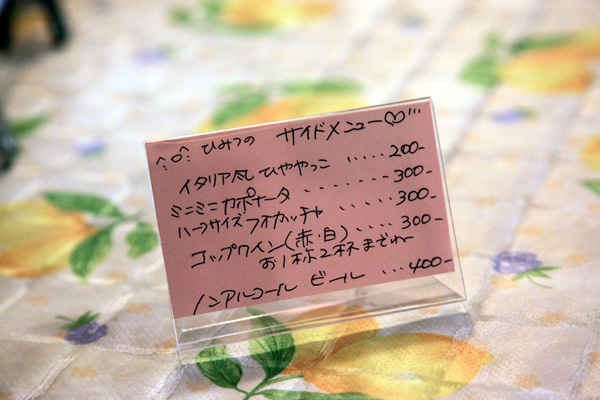 ^o^ ひみつの サイドメニュー♡...
イタリア風 ひややっこ ..... 200-
ミニミニカポナータ ........ 300-
ハーフサイズフォカッチャ ..... 300-
コップワイン(赤・白) .... 300-
お1人様2杯までね
ノンアルコール ビール ... 400-